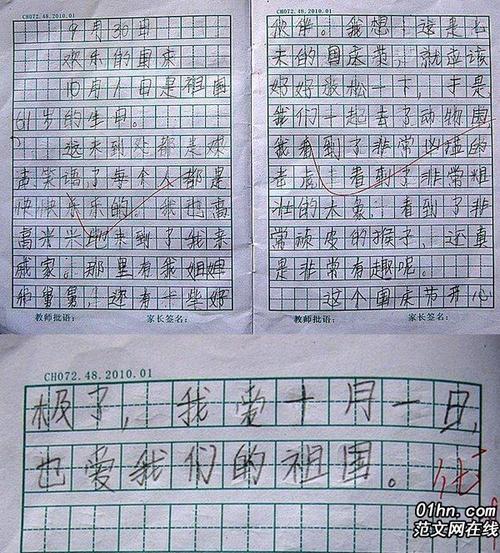 CH072.48.2010.01
9月30日
欢乐的国庆
10月1日是祖国
61岁的生日。
这来到处都是欢
声笑语了每个人都是
快快乐乐的。我也高
高兴兴地来到了我亲
戚家。那里有我姐姐
和舅舅,还有一些好
教师批语: 家长签名:
伙伴。我想:这是七
天的国庆节,就应该
好好放松一下,于是
我们一起去了动物园,
我看到了非常凶猛的
老虎,看到了非常粗
壮的大象,看到了非
常顽皮的猴子,还真
是非常有趣呢。
这个国庆节开心
教师批语: 家长签名:
CH072.48.2010.01
极了,我爱十月一日,
也爱我们的祖国。
01hn.com
范文网在线